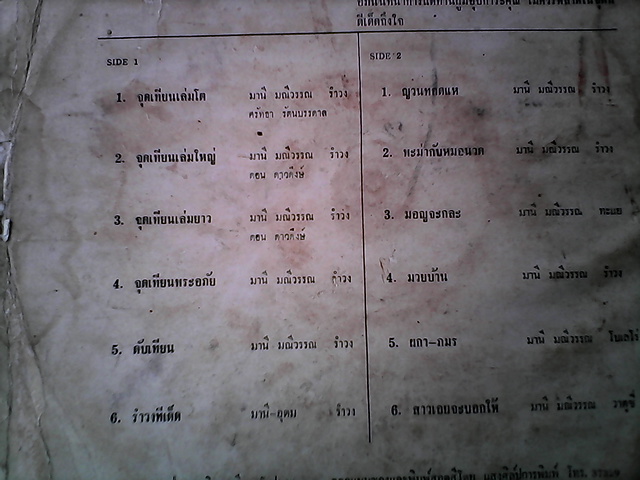 ดีเด็ดถึงใจ
SIDE 1
1. จุดเทียนเล่มโต มานี มณีวรรณ รำวง
ศรัทธา รัตนบรรดาล
2. จุดเทียนเล่มใหญ่ มานี มณีวรรณ รำวง
ดอน ดาวดึงษ์
3. จุดเทียนเล่มยาว มานี มณีวรรณ รำวง
ดอน ดาวดึงษ์
4. จุดเทียนพระอภัย มานี มณีวรรณ รำวง
5. ดับเทียน มานี มณีวรรณ รำวง
6. รำวงทีเด็ด มานี-อุดม รำวง
SIDE 2
1. ญวนทอดแห มานี มณีวรรณ รำวง
2. พะม่ากับหมอนวด มานี มณีวรรณ รำวง
3. มอญจะกละ มานี มณีวรรณ
4. มวยบ้าน มานี มณีวรรณ รำวง
5. ผกา-ภมร มานี มณีวรรณ
6. สาวเอยจะบอกให้ มานี มณีวรรณ